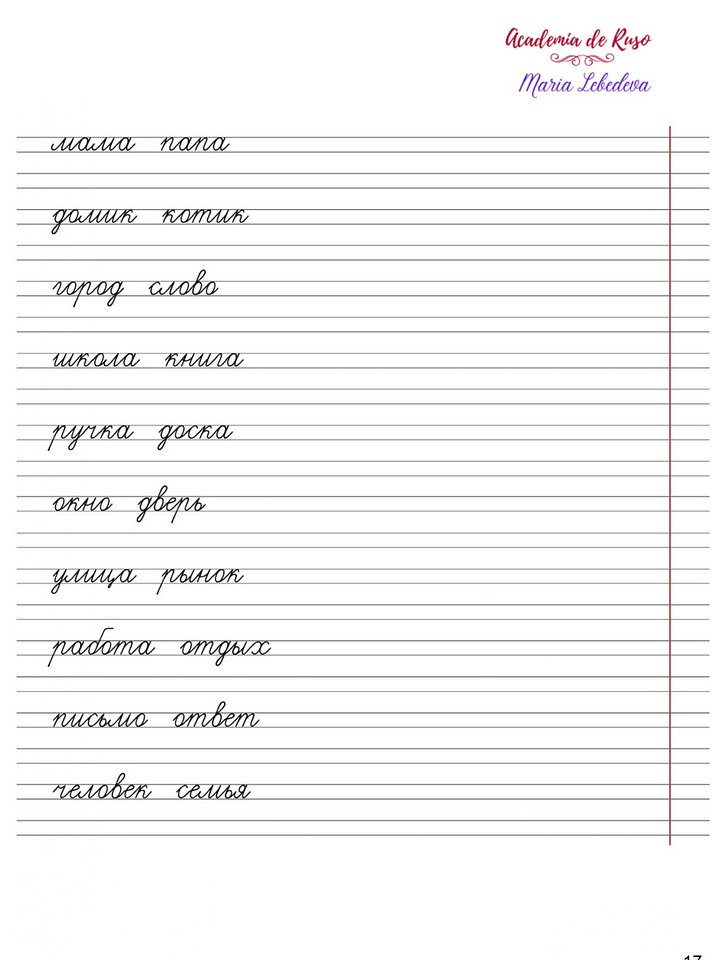 Academia de Ruso
Maria Lebedeva
мама папа
домик котик
город слово
школа книга
ручка доска
окно дверь
улица рынок
работа отдых
письмо ответ
человек семья
17